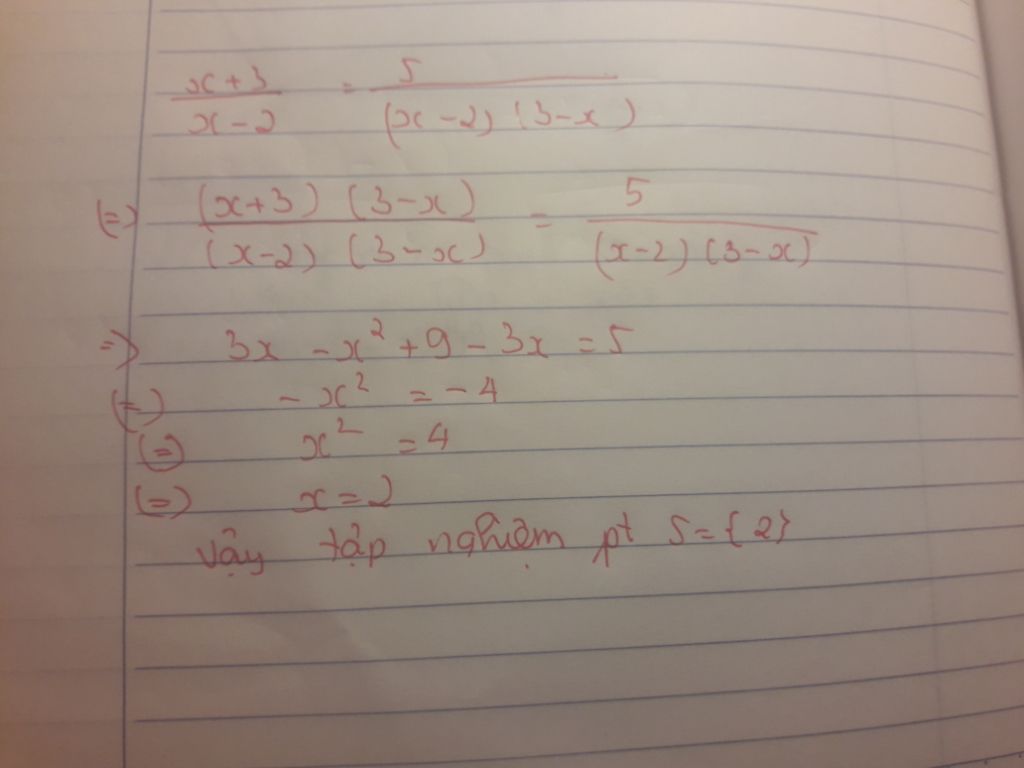 x+3 / x-2 = 5 / (x-2)(3-x)
(=) (x+3)(3-x) / (x-2)(3-x) = 5 / (x-2)(3-x)
=) 3x - x² + 9 - 3x = 5
(=) -x² = -4
(=) x² = 4
(=) x = 2
Vậy tập nghiệm pt S={2}